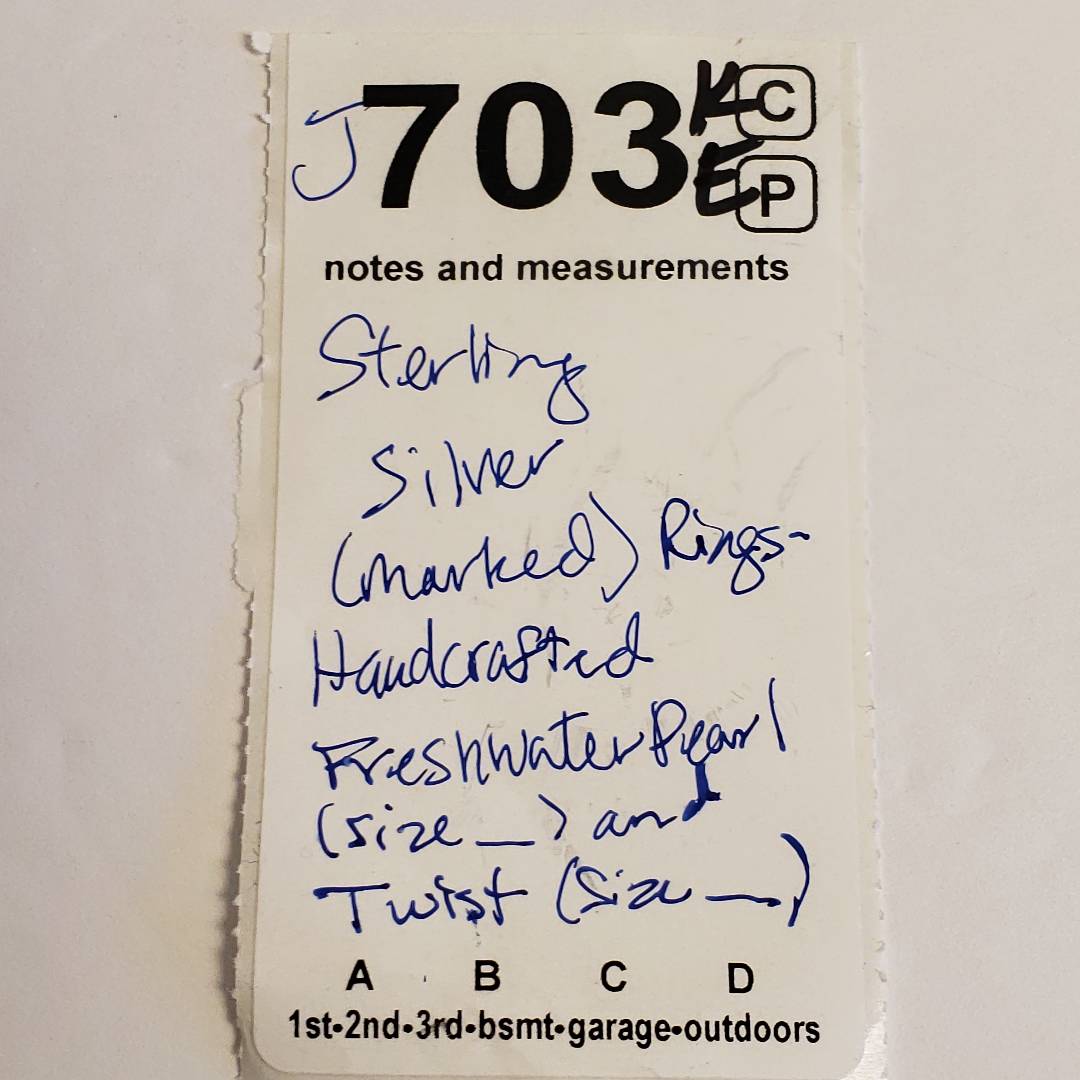 J703 K C
E P
notes and measurements
Sterling
Silver
(marked) Rings-
Handcrafted
Freshwater Pearl
(size _) and
Twist (Size _)
A B C D
1st•2nd•3rd•bsmt•garage•outdoors